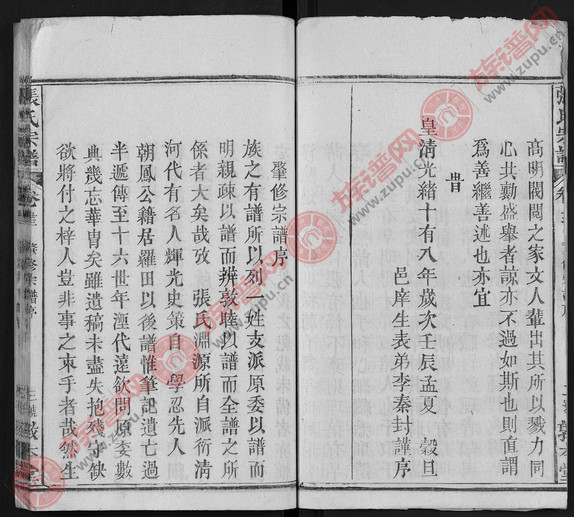 高明閥閱之家文人輩出其所以戮力同
心共勷盛舉者諒亦不過如斯也則直謂
為善繼善述也亦宜
旹
皇清光緒十有八年歲次壬辰孟夏 穀旦
邑庠生表弟李秦封謹序
肇修宗譜序
族之有譜所以列一姓支派原委以譜而
明親疎以譜而辨敦睦以譜而全譜之所
係者大矣哉攷 張氏淵源所自派衍清
河代有名人輝光史策自 學忍先人
朝鳳公籍居羅田以後譜惟筆記遺七過
半遞傳至十六世年湮代遠欲問原委數
典幾忘華冑矣雖遺稿未盡失抱殘 缺
欲將付之梓人豈非事之束手者哉然生
張氏宗譜
卷
肇修宗譜序
敦本堂
族谱网
www.zupu.cn